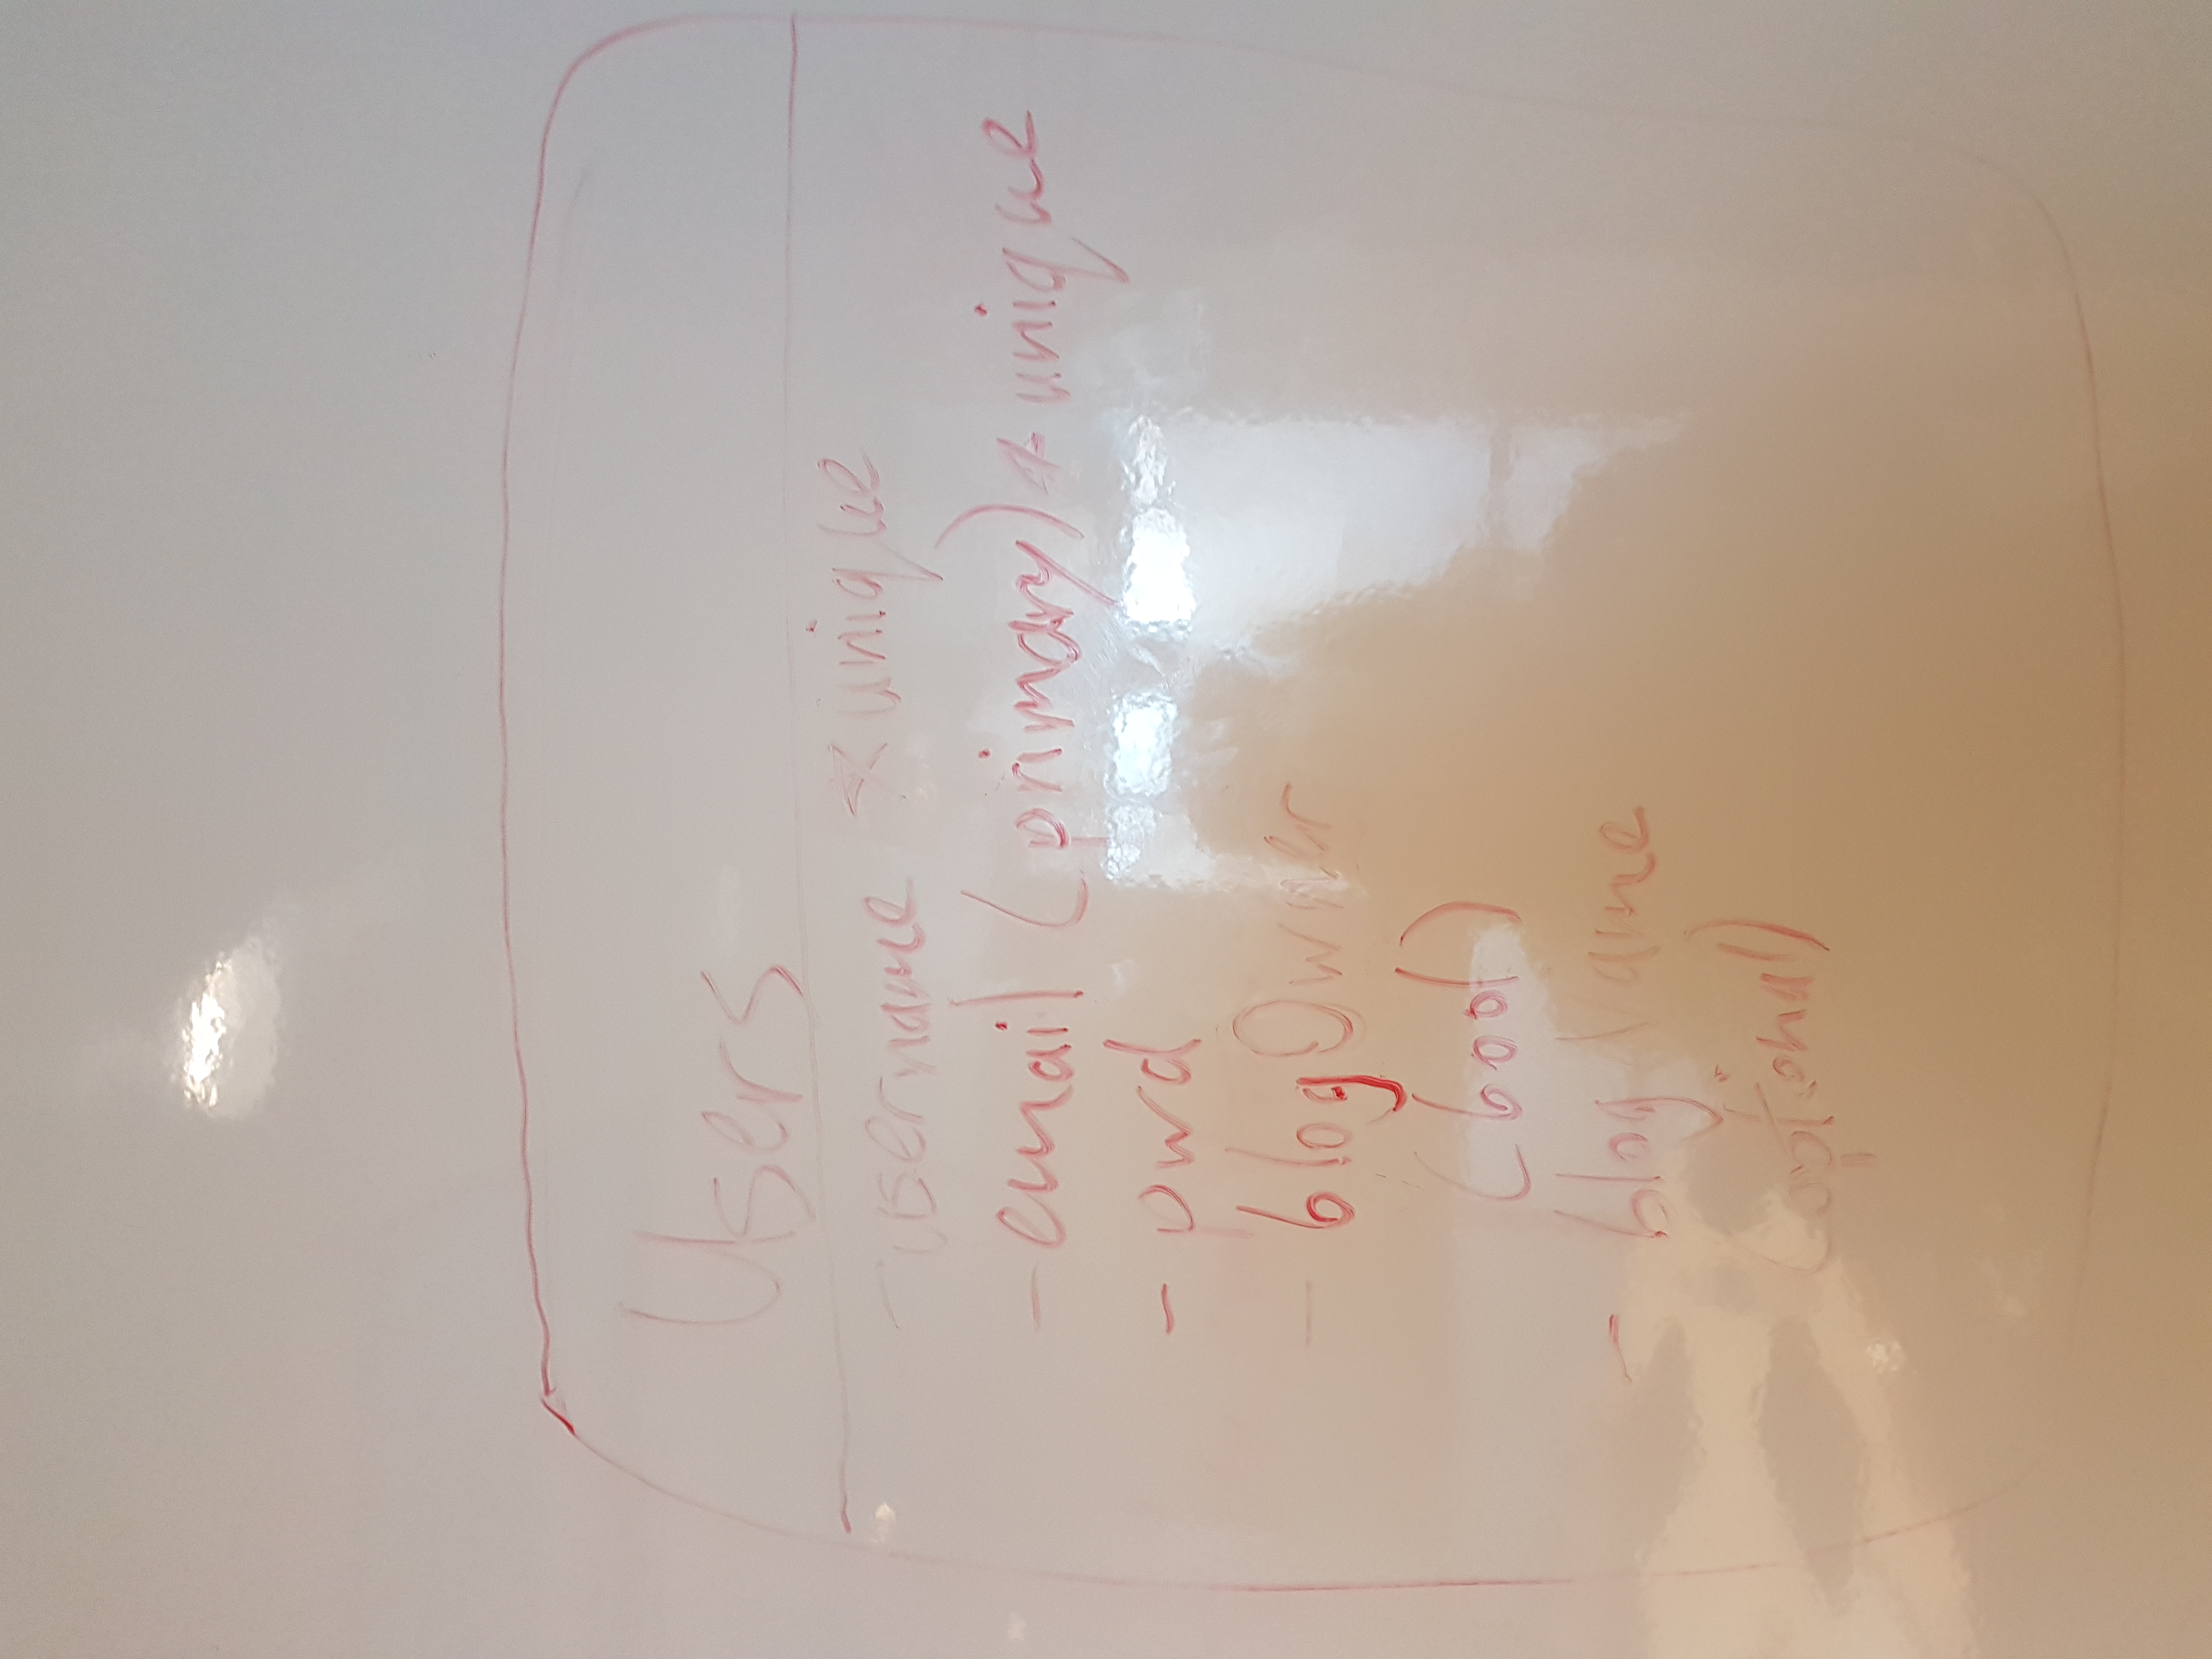 Users
- username * unique
- email (primary) * unique
- pwd
- blogOwner
(bool)
- blogName
(optional)